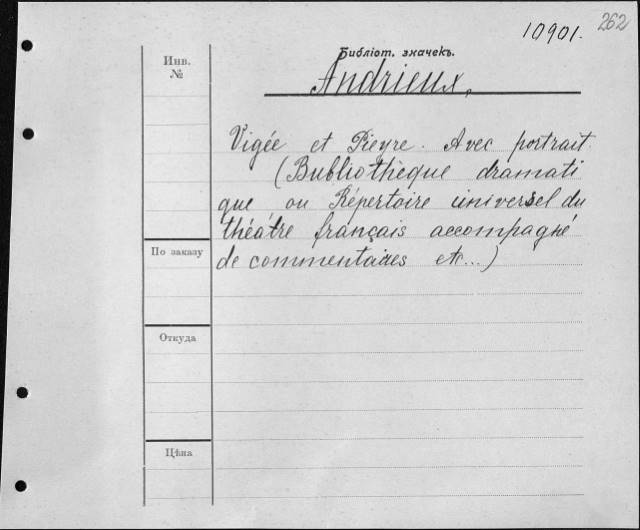 10901.
262
Библіот. значекъ.
Инв.
№
Andrieux,
Vigée et Pieyre. Avec portrait
(Bubliothèque dramati
que ou Répertoire universel du
théâtre français accompagné
По заказу
de commentaires etc...)
Откуда
Цѣна